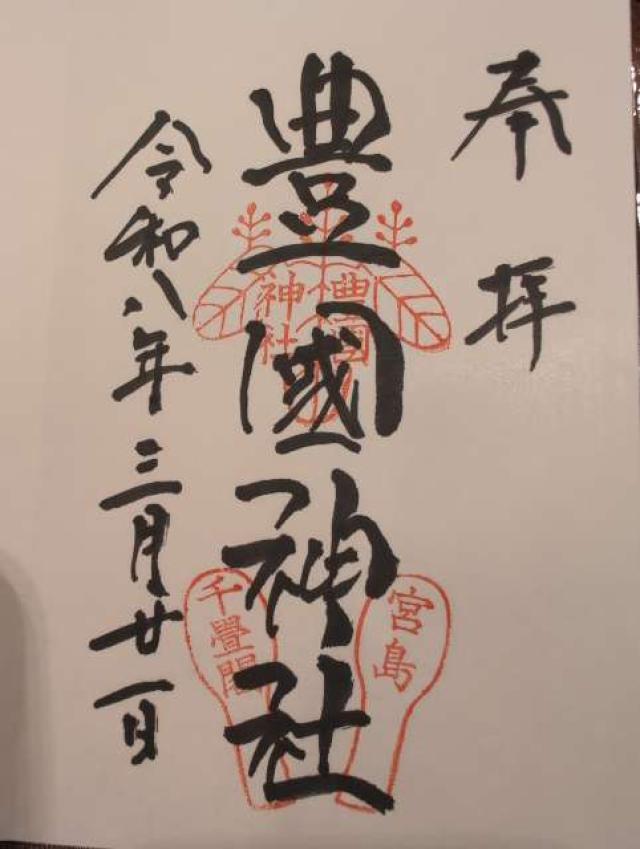 奉拝
豊國神社
令和八年三月廿一日
豊国
神社
宮島
千畳閣